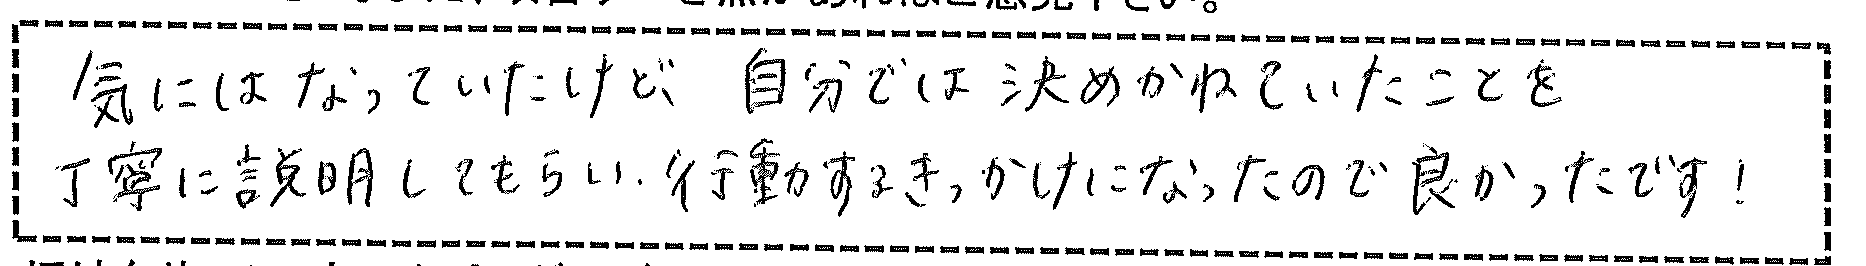 気にはなっていたけど、自分では決めかねていたことを
丁寧に説明してもらい、行動するきっかけになったので良かったです!